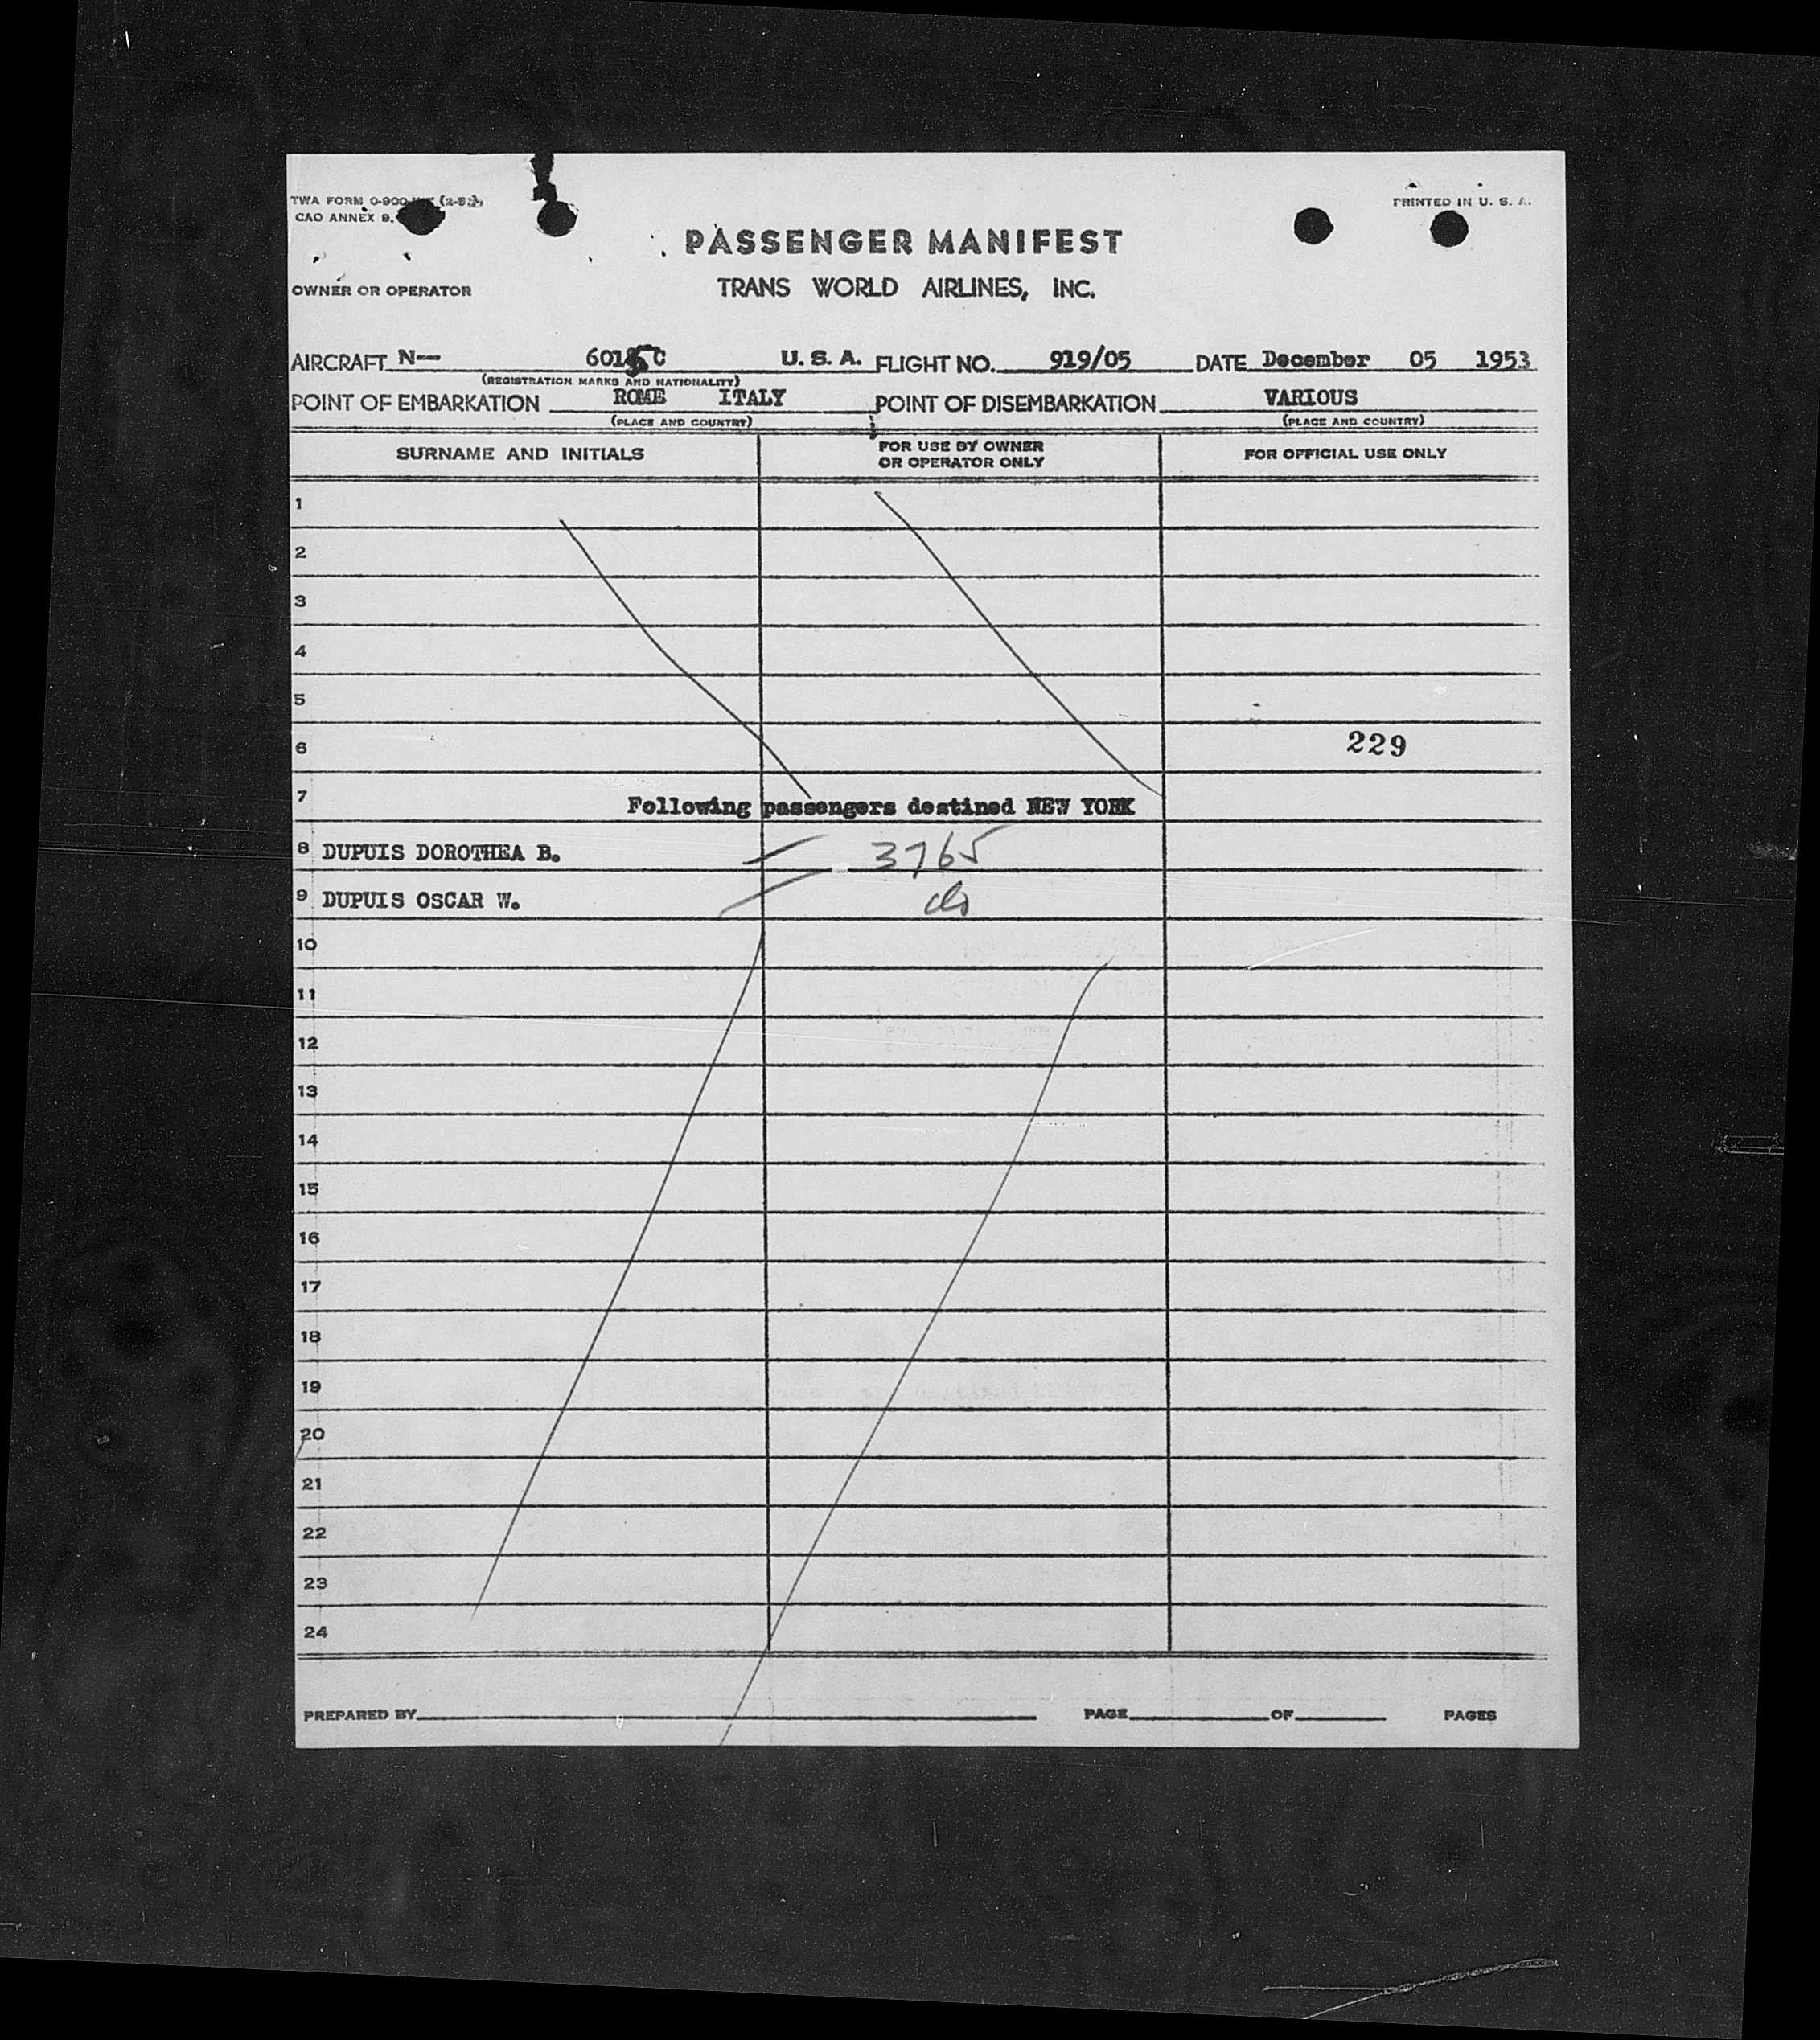 TWA FORM 0-900 (2-53)
PRINTED IN U. S. A.
CAO ANNEX 9,
PASSENGER MANIFEST
OWNER OR OPERATOR
TRANS WORLD AIRLINES, INC.
AIRCRAFT N— C U. S. A. FLIGHT NO. 919/05 DATE December 05 1953
(REGISTRATION MARKS AND NATIONALITY)
POINT OF EMBARKATION ROME ITALY POINT OF DISEMBARKATION VARIOUS
(PLACE AND COUNTRY) (PLACE AND COUNTRY)
SURNAME AND INITIALS
FOR USE BY OWNER
OR OPERATOR ONLY
FOR OFFICIAL USE ONLY
1
2
3
4
5
6 229
7 Following passengers destined NEW YORK
8 DUPUIS DOROTHEA B. 3765
9 DUPUIS OSCAR W. do
10
11
12
13
14
15
16
17
18
19
20
21
22
23
24
PREPARED BY PAGE OF PAGES